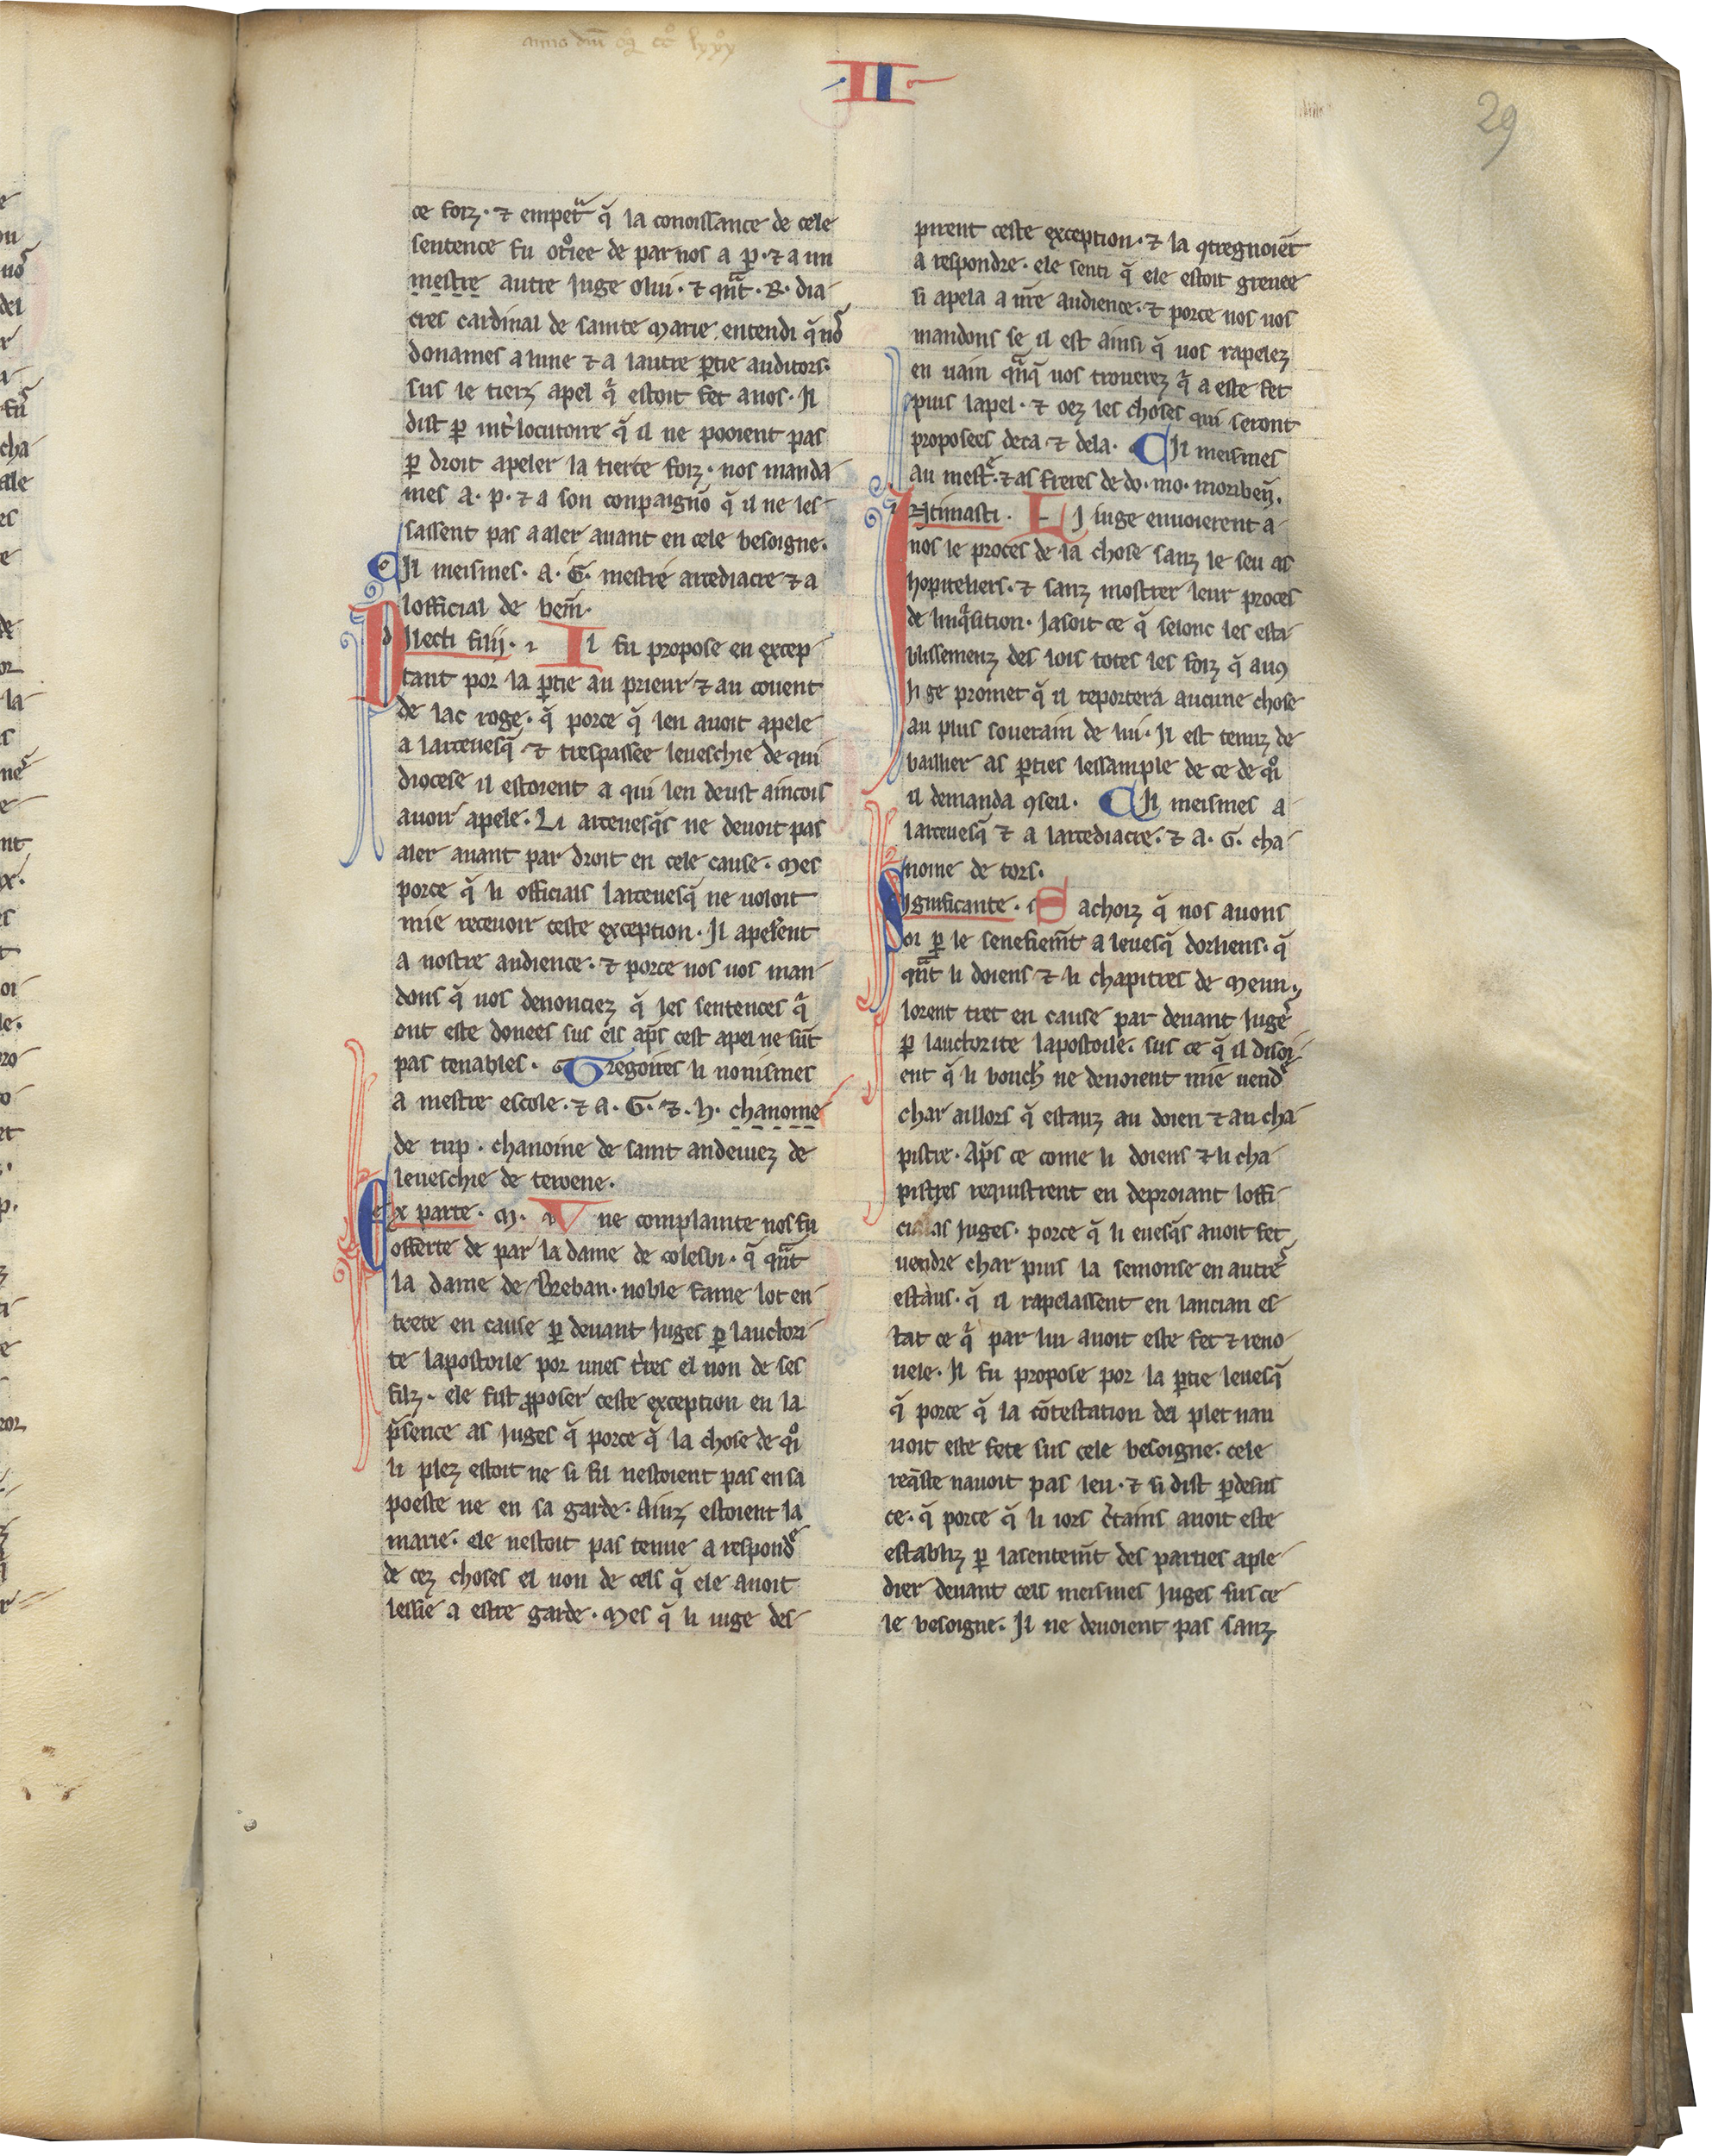 anno dm̄ .. cc° lxxx
II
29
ce foiz · ⁊ empetᵃ q̄ la conoissance de cele
sentence fu otͦiee de par nos a p · ⁊ a un
mestre autre iuge o lui · ⁊ qn̄t · R · dia
cres cardinal de sainte marie entendi q̄ nos
donames a lune ⁊ a lautre ꝑtie auditors ·
sus le tierz apel qͥ estoit fet a nos · Il
dist ꝑ int̾locutoire q̄ il ne pooient pas
ꝑ droit apeler la tierte foiz · nos manda
mes a · p · ⁊ a son conpaignō q̄ il ne les
sassent pas a aler auant en cele besoigne ·
Il meismes · a · G · mestre arcediacre ⁊ a
lofficial de bem̄ ·
Dilecti filij · Il fu propose en excep
tant por la ꝑtie au prieur ⁊ au couent
de lac roge · q̄ porce q̄ len auoit apele
a larceuesq̄ ⁊ trespassee leueschie de qui
diocese il estoient a qui len deust aincois
auoir apele · Li arceuesq̄s ne deuoit pas
aler auant par droit en cele cause · mes
porce q̄ li officiaus larceuesq̄ ne uoloit
mie receuoir ceste exception · Il apelerent
a nostre audience · ⁊ porce nos uos man
dons q̄ uos denonciez q̄ les sentences qͥ
ont este donees sus els ap̄s cest apel ne sūt
pas tenables · Gregoires li nouismes
a mestre escole · ⁊ a · G · ⁊ · h · chanoine
de rup · chanoine de saint andemez de
leueschie de terwene ·
Ex parte · M · Vne complainte nos fu
offerte de par la dame de colesbi · q̄ qn̄t
la dame de Breban · noble fame lot en
trete en cause ꝑ deuant iuges ꝑ lauctori
te lapostoile por unes l̾res el non de ses
filz · ele fist ꝓposer ceste exception en la
p̄sence as iuges q̄ porce q̄ la chose de qͦi
li plez estoit ne si fil nestoient pas en sa
poeste ne en sa garde · Ainz estoient la
marie · ele nestoit pas tenue a respondͤ
de cez choses el non de cels q̄ ele auoit
lessie a estre garde · Mes q̄ li iuge des
pirent ceste exception · ⁊ la ꝯtregnoiēt
a respondre · ele senti q̄ ele estoit greuee
si apela a n̄re audience · ⁊ porce nos uos
mandons se il est ainsi q̄ uos rapelez
en uain qn̄q̄ uos trouerez qͥ a este fet
puis lapel · ⁊ oez les choses qui seront
proposees deca ⁊ dela · Il meismes
au mestͤ · ⁊ as freres de do · mo · moriben̄ ·
Intimasti · Li iuge enuoierent a
nos le proces de la chose sanz le seu as
hopiteliers · ⁊ sanz mostrer leur proces
de linqͥsition · Jasoit ce q̄ selonc les esta
blissemenz des lois totes les foiz q̄ aus
iuge promet q̄ il reportera aucune chose
au plus souerain de lui · Il est tenuz de
baillier as ꝑties lessample de ce de qͦi
il demanda ꝯseil · Il meismes a
larceuesq̄ ⁊ a larcediacre · ⁊ a · G · cha
noine de tors ·
Significante · Sachoiz q̄ nos auons
oi ꝑ le senefiem̄t a leuesq̄ dorliens · q̄
qn̄t li doiens ⁊ li chapitres de meun
lorent tret en cause par deuant iuges
ꝑ lauctorite lapostoile · sus ce q̄ il disoi
ent q̄ li bouch̾ ne deuoient mie uendͤ
char aillors q̄ estauz au doien ⁊ au cha
pistre · Ap̄s ce come li doiens ⁊ li cha
pistres requistrent en deproiant loffi
cial as iuges · porce q̄ li euesq̄s auoit fet
uendre char puis la semonse en autres
estaus · q̄ il rapelassent en lancian es
tat ce qͥ par lui auoit este fet ⁊ reno
uele · Il fu propose por la ꝑtie leuesq̄
q̄ porce q̄ la cōtestation del plet nau
uoit este fete sus cele besoigne · cele
req̄ste nauoit pas leu · ⁊ si dist ꝑdesus
ce · q̄ porce q̄ li iors c̾tains auoit este
establiz ꝑ lasentem̄t des parties a ple
dier deuant cels meismes iuges sus ce
le besoigne · Il ne deuoient pas sanz